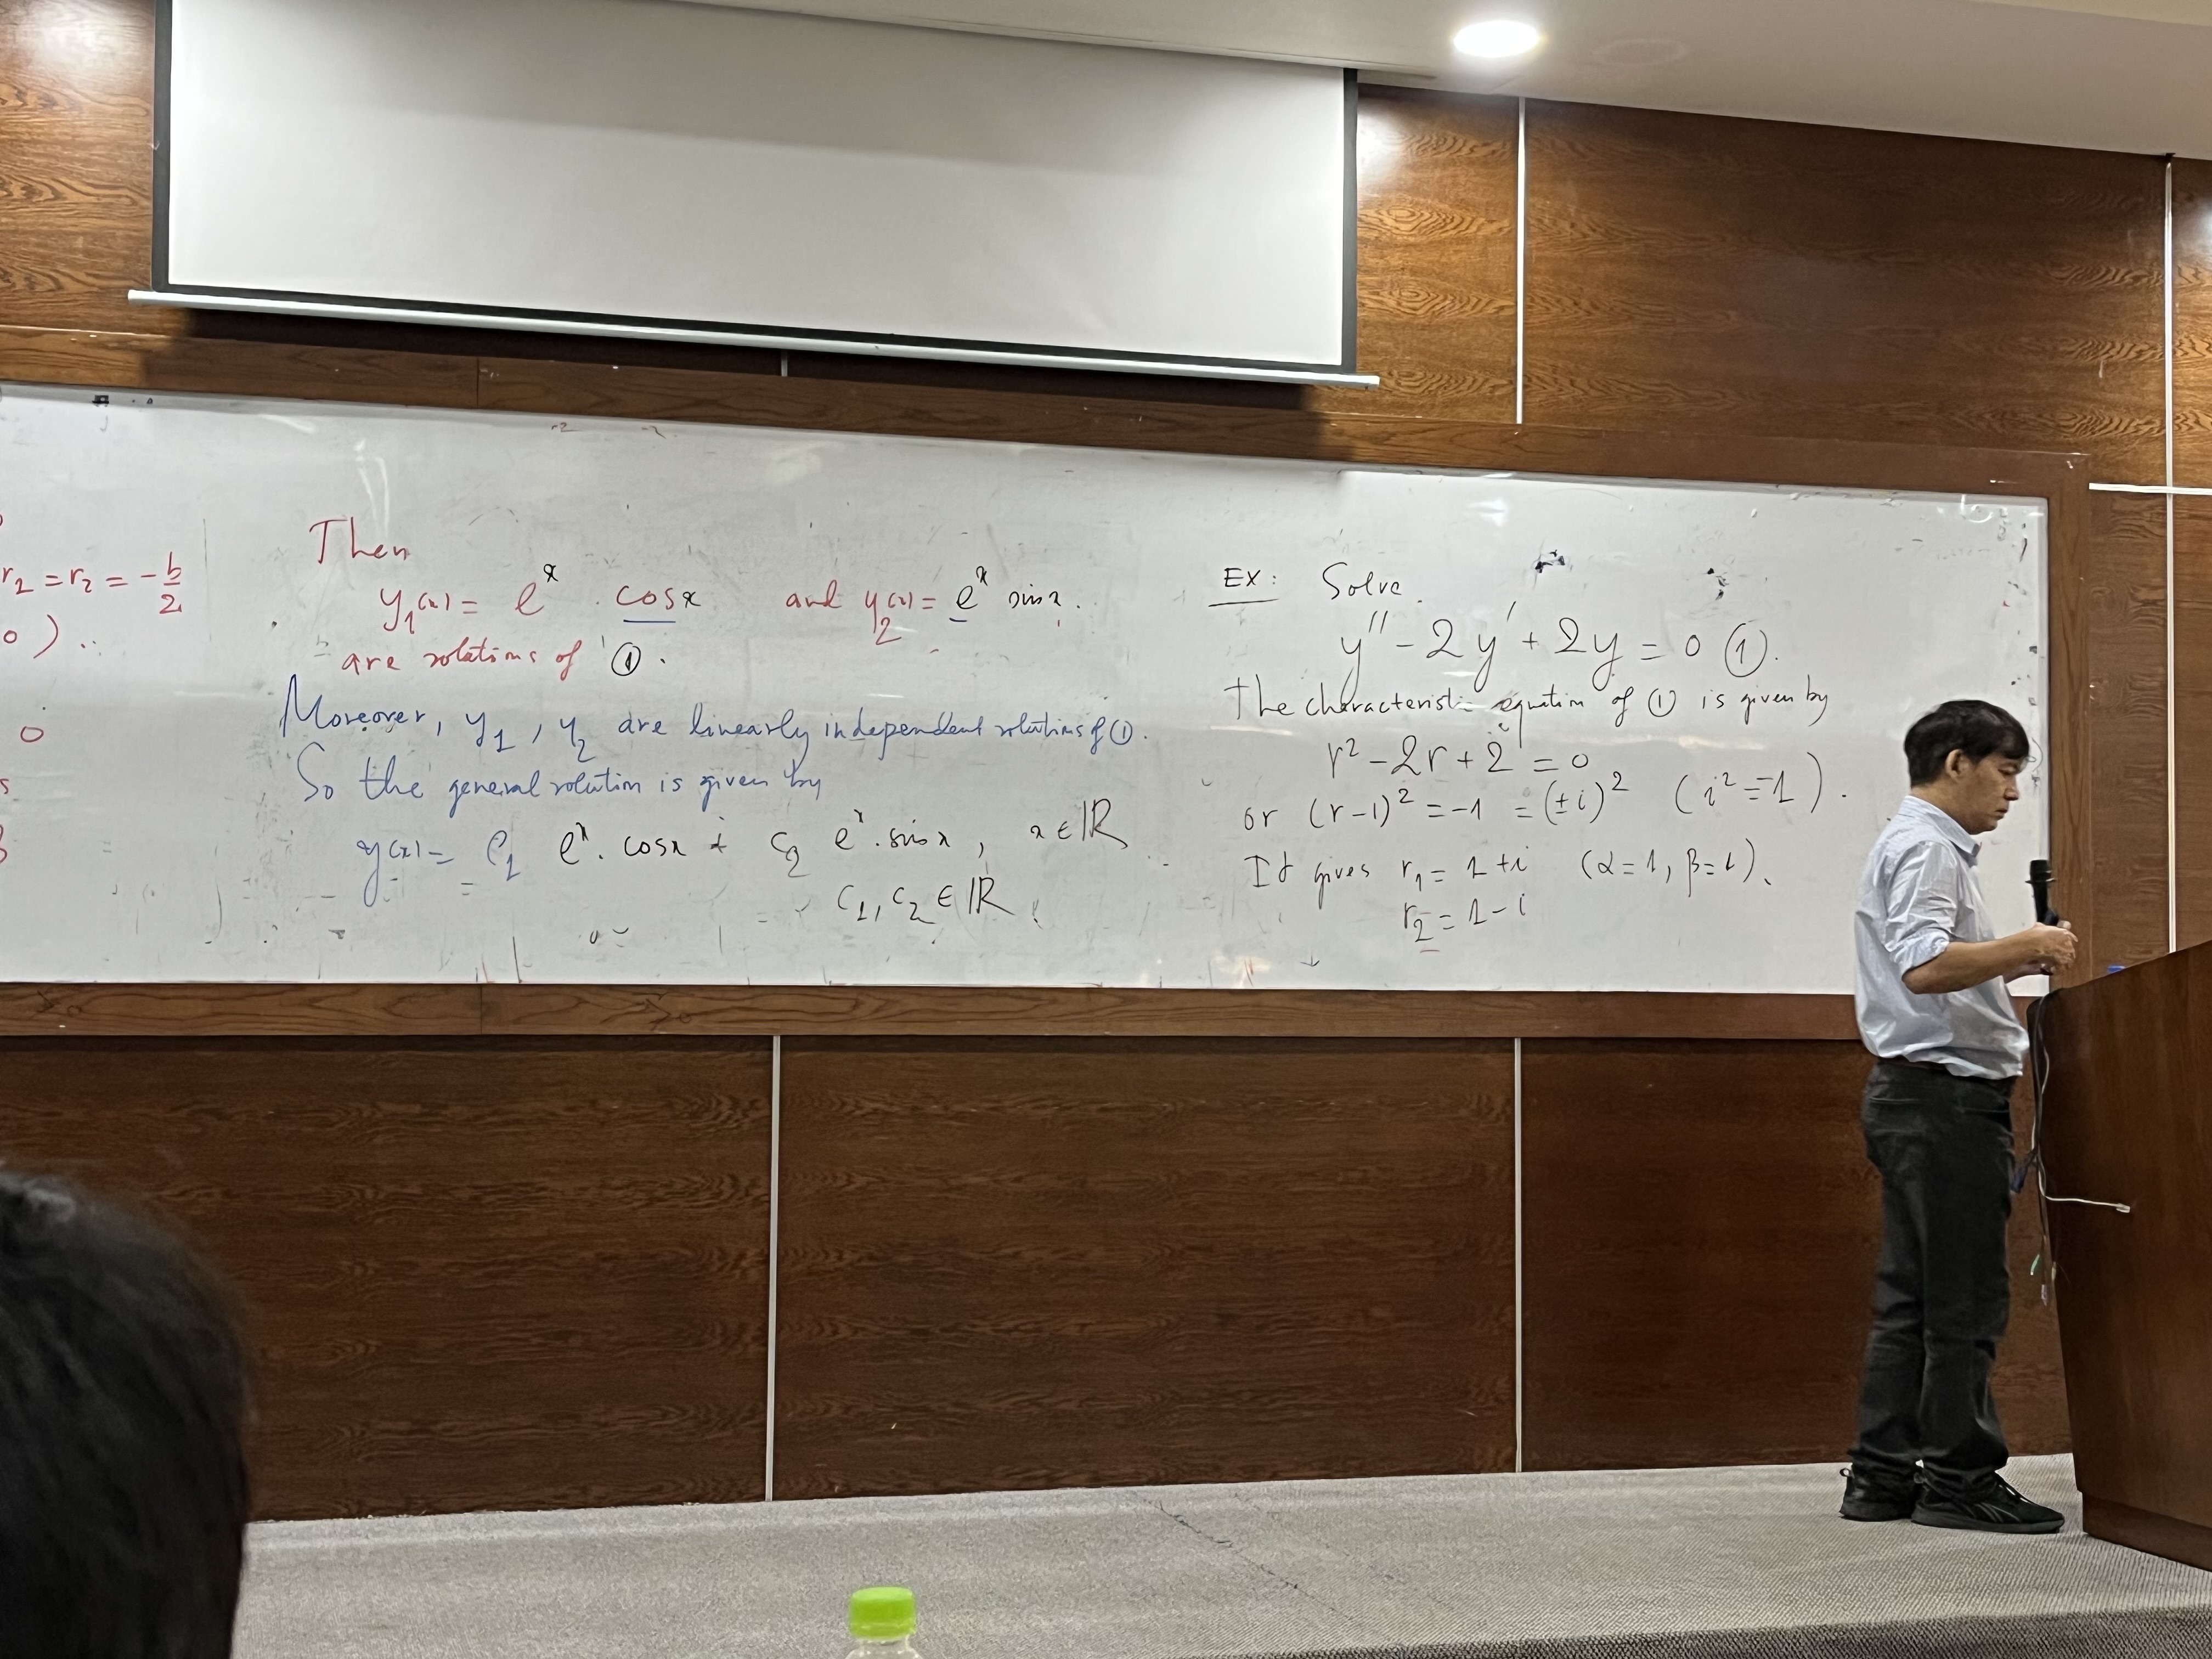 r₂ = r₂ = -b/2
0 ) ..
0
s
Then
y₁(x) = eˣ . cosx and y₂(x) = eˣ sinx.
are solutions of ①.
Moreover, y₁, y₂ are linearly independent solutions of ①.
So the general solution is given by
y(x) = C₁ eˣ. cosx + C₂ eˣ. sinx, x ∈ ℝ
C₁, C₂ ∈ ℝ.
EX: Solve
y'' - 2y' + 2y = 0 ①.
The characteristic equation of ① is given by
r² - 2r + 2 = 0
or (r-1)² = -1 = (±i)² (i² = -1).
It gives r₁ = 1+i (α=1, β=1).
r₂ = 1-i